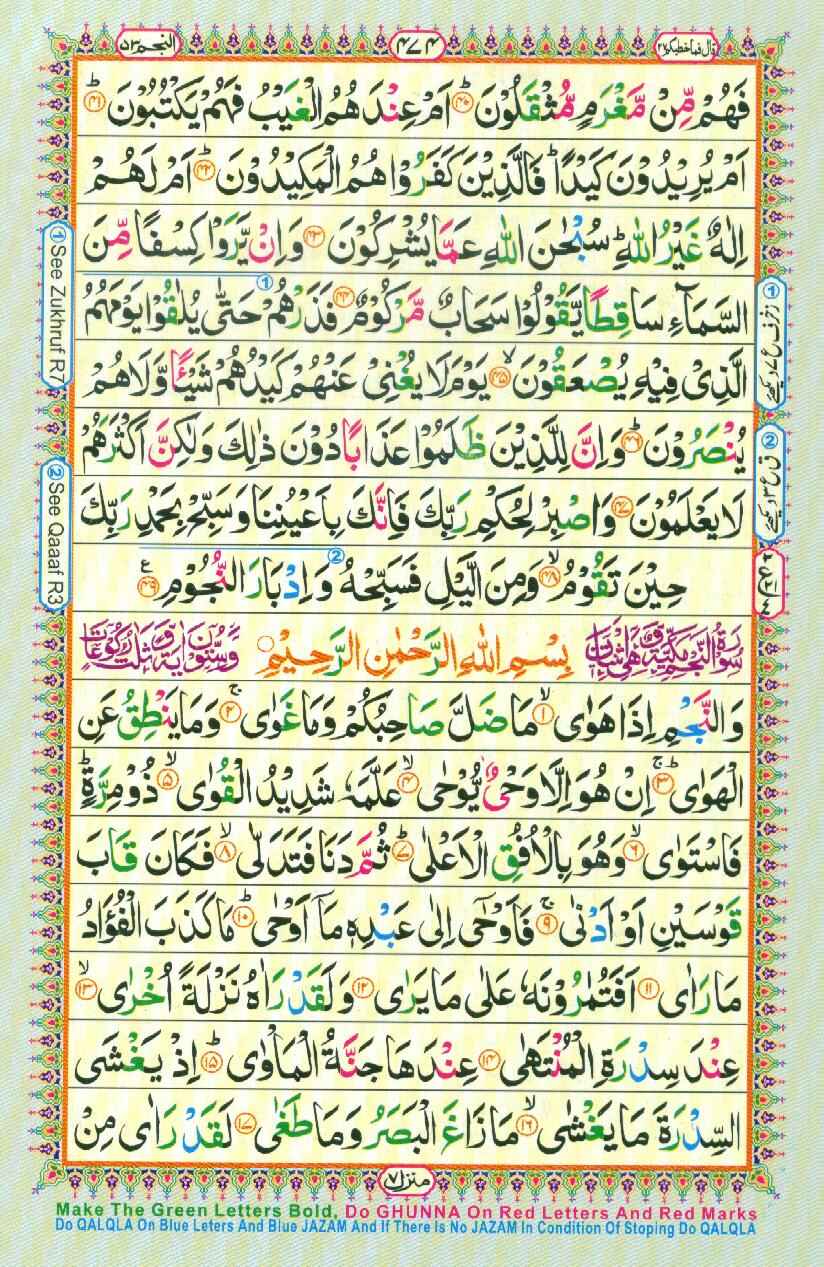 قال فما خطبکم ۲۷
۴۷۴
النجم ۵۳
فَهُمْ مِّنْ مَّغْرَمٍ مُّثْقَلُوْنَ ؕ﴿۴۰﴾ اَمْ عِنْدَهُمُ الْغَيْبُ فَهُمْ يَكْتُبُوْنَ ؕ﴿۴۱﴾
اَمْ يُرِيْدُوْنَ كَيْدًا ؕ فَالَّذِيْنَ كَفَرُوْا هُمُ الْمَكِيْدُوْنَ ؕ﴿۴۲﴾ اَمْ لَهُمْ
اِلٰهٌ غَيْرُ اللّٰهِ ؕ سُبْحٰنَ اللّٰهِ عَمَّا يُشْرِكُوْنَ ﴿۴۳﴾ وَاِنْ يَّرَوْا كِسْفًا مِّنَ
السَّمَآءِ سَاقِطًا يَّقُوْلُوْا سَحَابٌ مَّرْكُوْمٌ ﴿۴۴﴾ فَذَرْهُمْ ① حَتّٰى يُلٰقُوْا يَوْمَهُمُ
الَّذِىْ فِيْهِ يُصْعَقُوْنَ ۙ﴿۴۵﴾ يَوْمَ لَا يُغْنِىْ عَنْهُمْ كَيْدُهُمْ شَيْئًا وَّلَا هُمْ
يُنْصَرُوْنَ ؕ﴿۴۶﴾ وَاِنَّ لِلَّذِيْنَ ظَلَمُوْا عَذَابًا دُوْنَ ذٰلِكَ وَلٰكِنَّ اَكْثَرَهُمْ
لَا يَعْلَمُوْنَ ﴿۴۷﴾ وَاصْبِرْ لِحُكْمِ رَبِّكَ فَاِنَّكَ بِاَعْيُنِنَا وَسَبِّحْ بِحَمْدِ رَبِّكَ
حِيْنَ تَقُوْمُ ۙ﴿۴۸﴾ وَمِنَ الَّيْلِ فَسَبِّحْهُ ② وَاِدْبَارَ النُّجُوْمِ ﴿۴۹﴾ ع
سُوْرَةُ النَّجْمِ مَكِّيَّةٌ وَّهِىَ اثْنَتَانِ بِسْمِ اللّٰهِ الرَّحْمٰنِ الرَّحِيْمِ وَّسِتُّوْنَ اٰيَةً وَّثَلٰثُ رُكُوْعَاتٍ
وَالنَّجْمِ اِذَا هَوٰى ۙ﴿۱﴾ مَا ضَلَّ صَاحِبُكُمْ وَمَا غَوٰى ۚ﴿۲﴾ وَمَا يَنْطِقُ عَنِ
الْهَوٰى ؕ﴿۳﴾ اِنْ هُوَ اِلَّا وَحْىٌ يُّوْحٰى ۙ﴿۴﴾ عَلَّمَهٗ شَدِيْدُ الْقُوٰى ۙ﴿۵﴾ ذُوْ مِرَّةٍ ؕ
فَاسْتَوٰى ۙ﴿۶﴾ وَهُوَ بِالْاُفُقِ الْاَعْلٰى ؕ﴿۷﴾ ثُمَّ دَنَا فَتَدَلّٰى ۙ﴿۸﴾ فَكَانَ قَابَ
قَوْسَيْنِ اَوْ اَدْنٰى ۚ﴿۹﴾ فَاَوْحٰٓى اِلٰى عَبْدِهٖ مَآ اَوْحٰى ؕ﴿۱۰﴾ مَا كَذَبَ الْفُؤَادُ
مَا رَاٰى ﴿۱۱﴾ اَفَتُمٰرُوْنَهٗ عَلٰى مَا يَرٰى ﴿۱۲﴾ وَلَقَدْ رَاٰهُ نَزْلَةً اُخْرٰى ۙ﴿۱۳﴾
عِنْدَ سِدْرَةِ الْمُنْتَهٰى ﴿۱۴﴾ عِنْدَهَا جَنَّةُ الْمَاْوٰى ؕ﴿۱۵﴾ اِذْ يَغْشَى
السِّدْرَةَ مَا يَغْشٰى ۙ﴿۱۶﴾ مَا زَاغَ الْبَصَرُ وَمَا طَغٰى ﴿۱۷﴾ لَقَدْ رَاٰى مِنْ
① See Zukhruf R7
② See Qaaaf R3
① زخرف ع ۷ دیکھئے
② ق ع ۳ دیکھئے
منزل ۷
Make The Green Letters Bold, Do GHUNNA On Red Letters And Red Marks
Do QALQLA On Blue Leters And Blue JAZAM And If There Is No JAZAM In Condition Of Stoping Do QALQLA